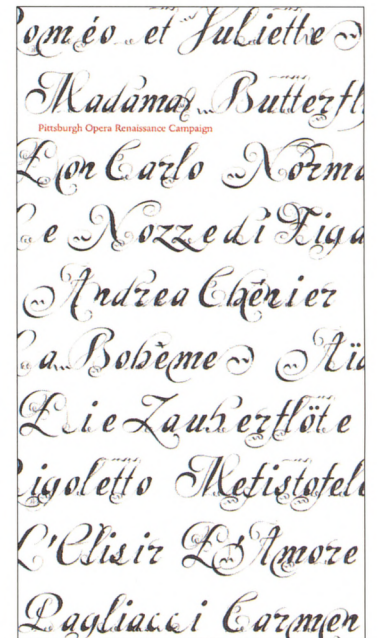 oméo et Juliette
Madama Butterfl
Pittsburgh Opera Renaissance Campaign
Don Carlo Norma
e Nozze di Figa
Andrea Chénier
a Bohème Aïd
Die Zauberflöte
igoletto Mefistofele
L'Elisir D'Amore
Pagliacci Carmen